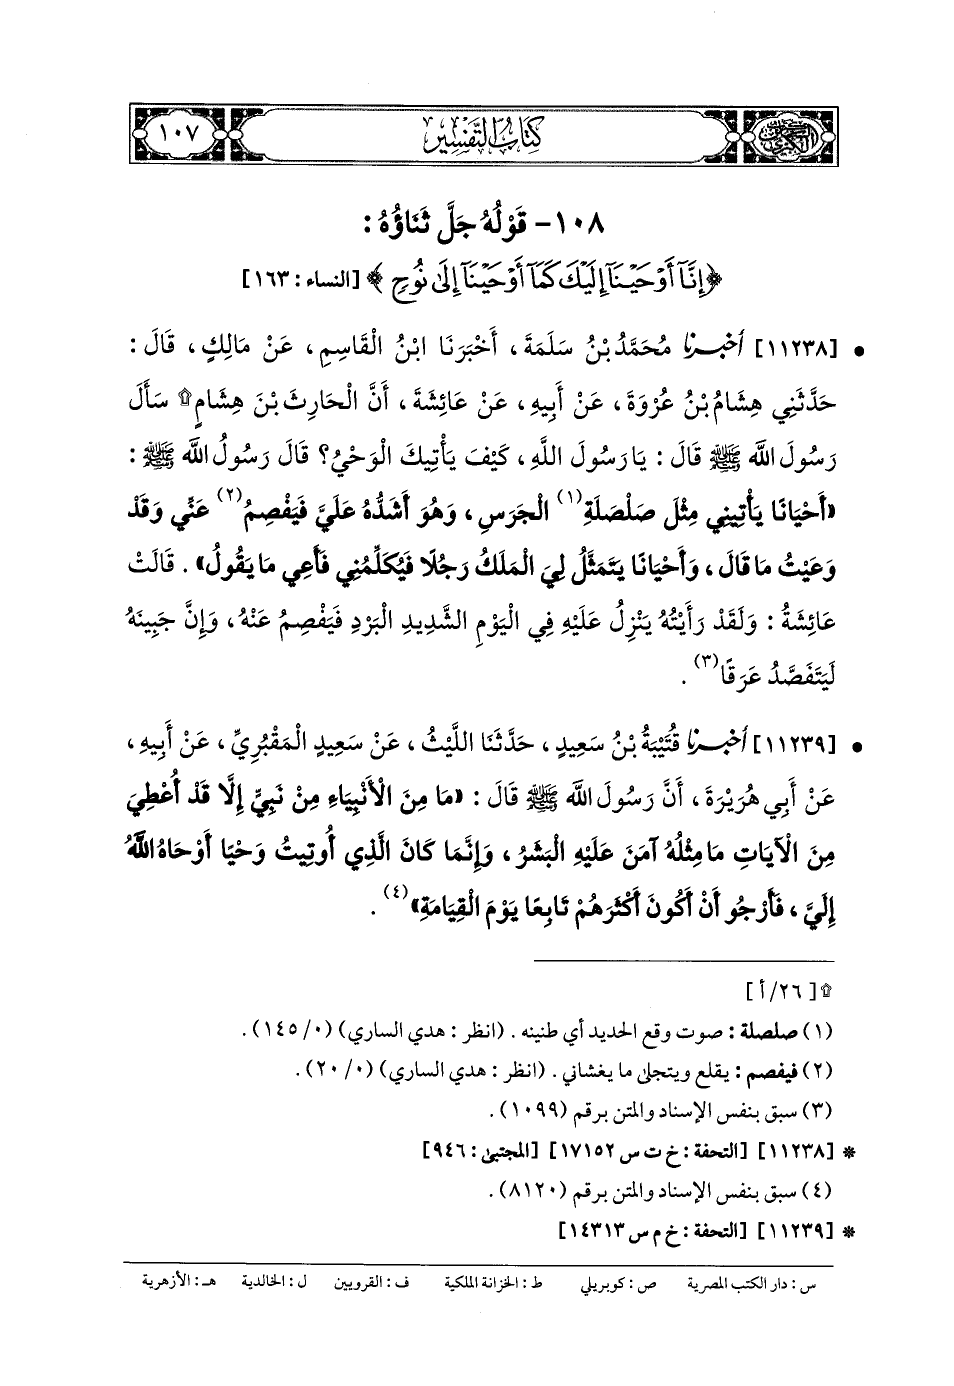 السنن الكبرى
كتاب التفسير
١٠٧
١٠٨- قَوْلُهُ جَلَّ ثَنَاؤُهُ :
﴿إِنَّآ أَوْحَيْنَآ إِلَيْكَ كَمَآ أَوْحَيْنَآ إِلَىٰ نُوحٍ ﴾ [النساء : ١٦٣]
• [١١٢٣٨] أخبرنا مُحَمَّدُ بْنُ سَلَمَةَ ، أَخْبَرَنَا ابْنُ الْقَاسِمِ ، عَنْ مَالِكٍ ، قَالَ :
حَدَّثَنِي هِشَامُ بْنُ عُرْوَةَ ، عَنْ أَبِيهِ ، عَنْ عَائِشَةَ ، أَنَّ الْحَارِثَ بْنَ هِشَامٍ۩ سَأَلَ
رَسُولَ اللَّه ﷺ قَالَ : يَا رَسُولَ اللَّهِ ، كَيْفَ يَأْتِيكَ الْوَحْيُ؟ قَالَ رَسُولُ اللَّه ﷺ :
«أَحْيَانًا يَأْتِينِي مِثْلَ صَلْصَلَةِ(١) الْجَرَسِ ، وَهُوَ أَشَدُّهُ عَلَيَّ فَيَفْصِمُ(٢) عَنِّي وَقَدْ
وَعَيْتُ مَا قَالَ ، وَأَحْيَانًا يَتَمَثَّلُ لِيَ الْمَلَكُ رَجُلًا فَيُكَلِّمُنِي فَأَعِي مَا يَقُولُ» . قَالَتْ
عَائِشَةُ : وَلَقَدْ رَأَيْتُهُ يَنْزِلُ عَلَيْهِ فِي الْيَوْمِ الشَّدِيدِ الْبَرْدِ فَيَفْصِمُ عَنْهُ ، وَإِنَّ جَبِينَهُ
لَيَتَفَصَّدُ عَرَقًا(٣) .
• [١١٢٣٩] أخبرنا قُتَيْبَةُ بْنُ سَعِيدٍ ، حَدَّثَنَا اللَّيْثُ ، عَنْ سَعِيدٍ الْمَقْبُرِيِّ ، عَنْ أَبِيهِ ،
عَنْ أَبِي هُرَيْرَةَ ، أَنَّ رَسُولَ اللَّه ﷺ قَالَ : «مَا مِنَ الْأَنْبِيَاءِ مِنْ نَبِيٍّ إِلَّا قَدْ أُعْطِيَ
مِنَ الْآيَاتِ مَا مِثْلُهُ آمَنَ عَلَيْهِ الْبَشَرُ ، وَإِنَّمَا كَانَ الَّذِي أُوتِيتُ وَحْيًا أَوْحَاهُ اللَّهُ
إِلَيَّ ، فَأَرْجُو أَنْ أَكُونَ أَكْثَرَهُمْ تَابِعًا يَوْمَ الْقِيَامَةِ»(٤) .
۩ [٢٦/أ]
(١) صلصلة : صوت وقع الحديد أي طنينه . (انظر : هدي الساري) (٠/ ١٤٥) .
(٢) فيفصم : يقلع ويتجلى ما يغشاني . (انظر : هدي الساري) (٠/ ٢٠) .
(٣) سبق بنفس الإسناد والمتن برقم (١٠٩٩) .
* [١١٢٣٨] [التحفة : خ ت س ١٧١٥٢] [المجتبى : ٩٤٦]
(٤) سبق بنفس الإسناد والمتن برقم (٨١٢٠) .
* [١١٢٣٩] [التحفة : خ م س ١٤٣١٣]
س : دار الكتب المصرية ص : كوبريلي ط : الخزانة الملكية ف : القرويين ل : الخالدية هـ : الأزهرية